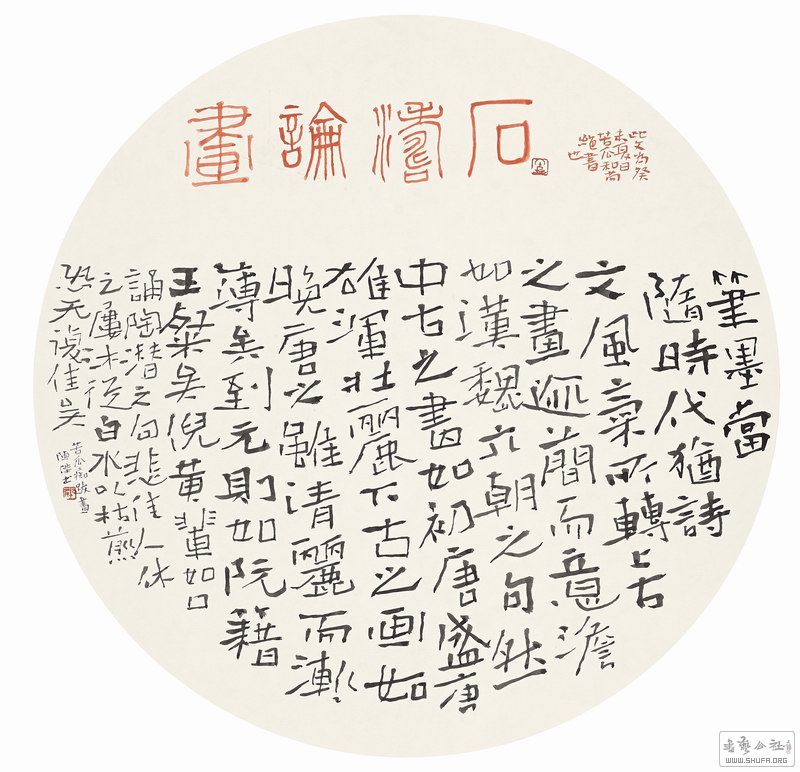 石濤論畫
筆墨當
隨時代猶詩
文風氣所轉上古
之畫迹簡而意澹
如漢魏六朝之句然
中古之畫如初唐盛唐
雄渾壯麗下古之画如
晚唐之雖清麗而漸
薄矣到元則如阮籍
王粲矣倪黃輩如口
誦陶潛之句悲佳人休
之屢沐從白水以枯煎
恐无復佳矣
WWW.SHUFA.ORG